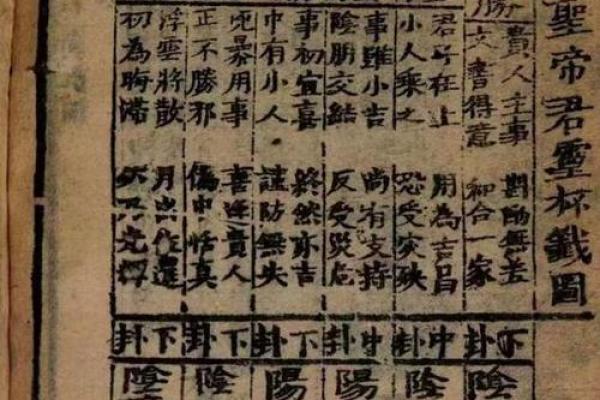 聖帝君靈杯籤圖
勝
貴人主事 斟酌無差
文書得意 和合一家
君子在上 用為吉昌
小人乘之 恐受灾殃
事雖小吉 尚有支持
陰朋交結 反受災危
事初宜喜 終然亦吉
中有小人 謹防無失
暴用事 喜逢貴人
正不勝邪 偽中恬真
浮雲將散 月出作還
初為晦滯
下卦
中卦
中卦
下卦
下卦
下卦
陰
陰
陽
陽
陰
陰